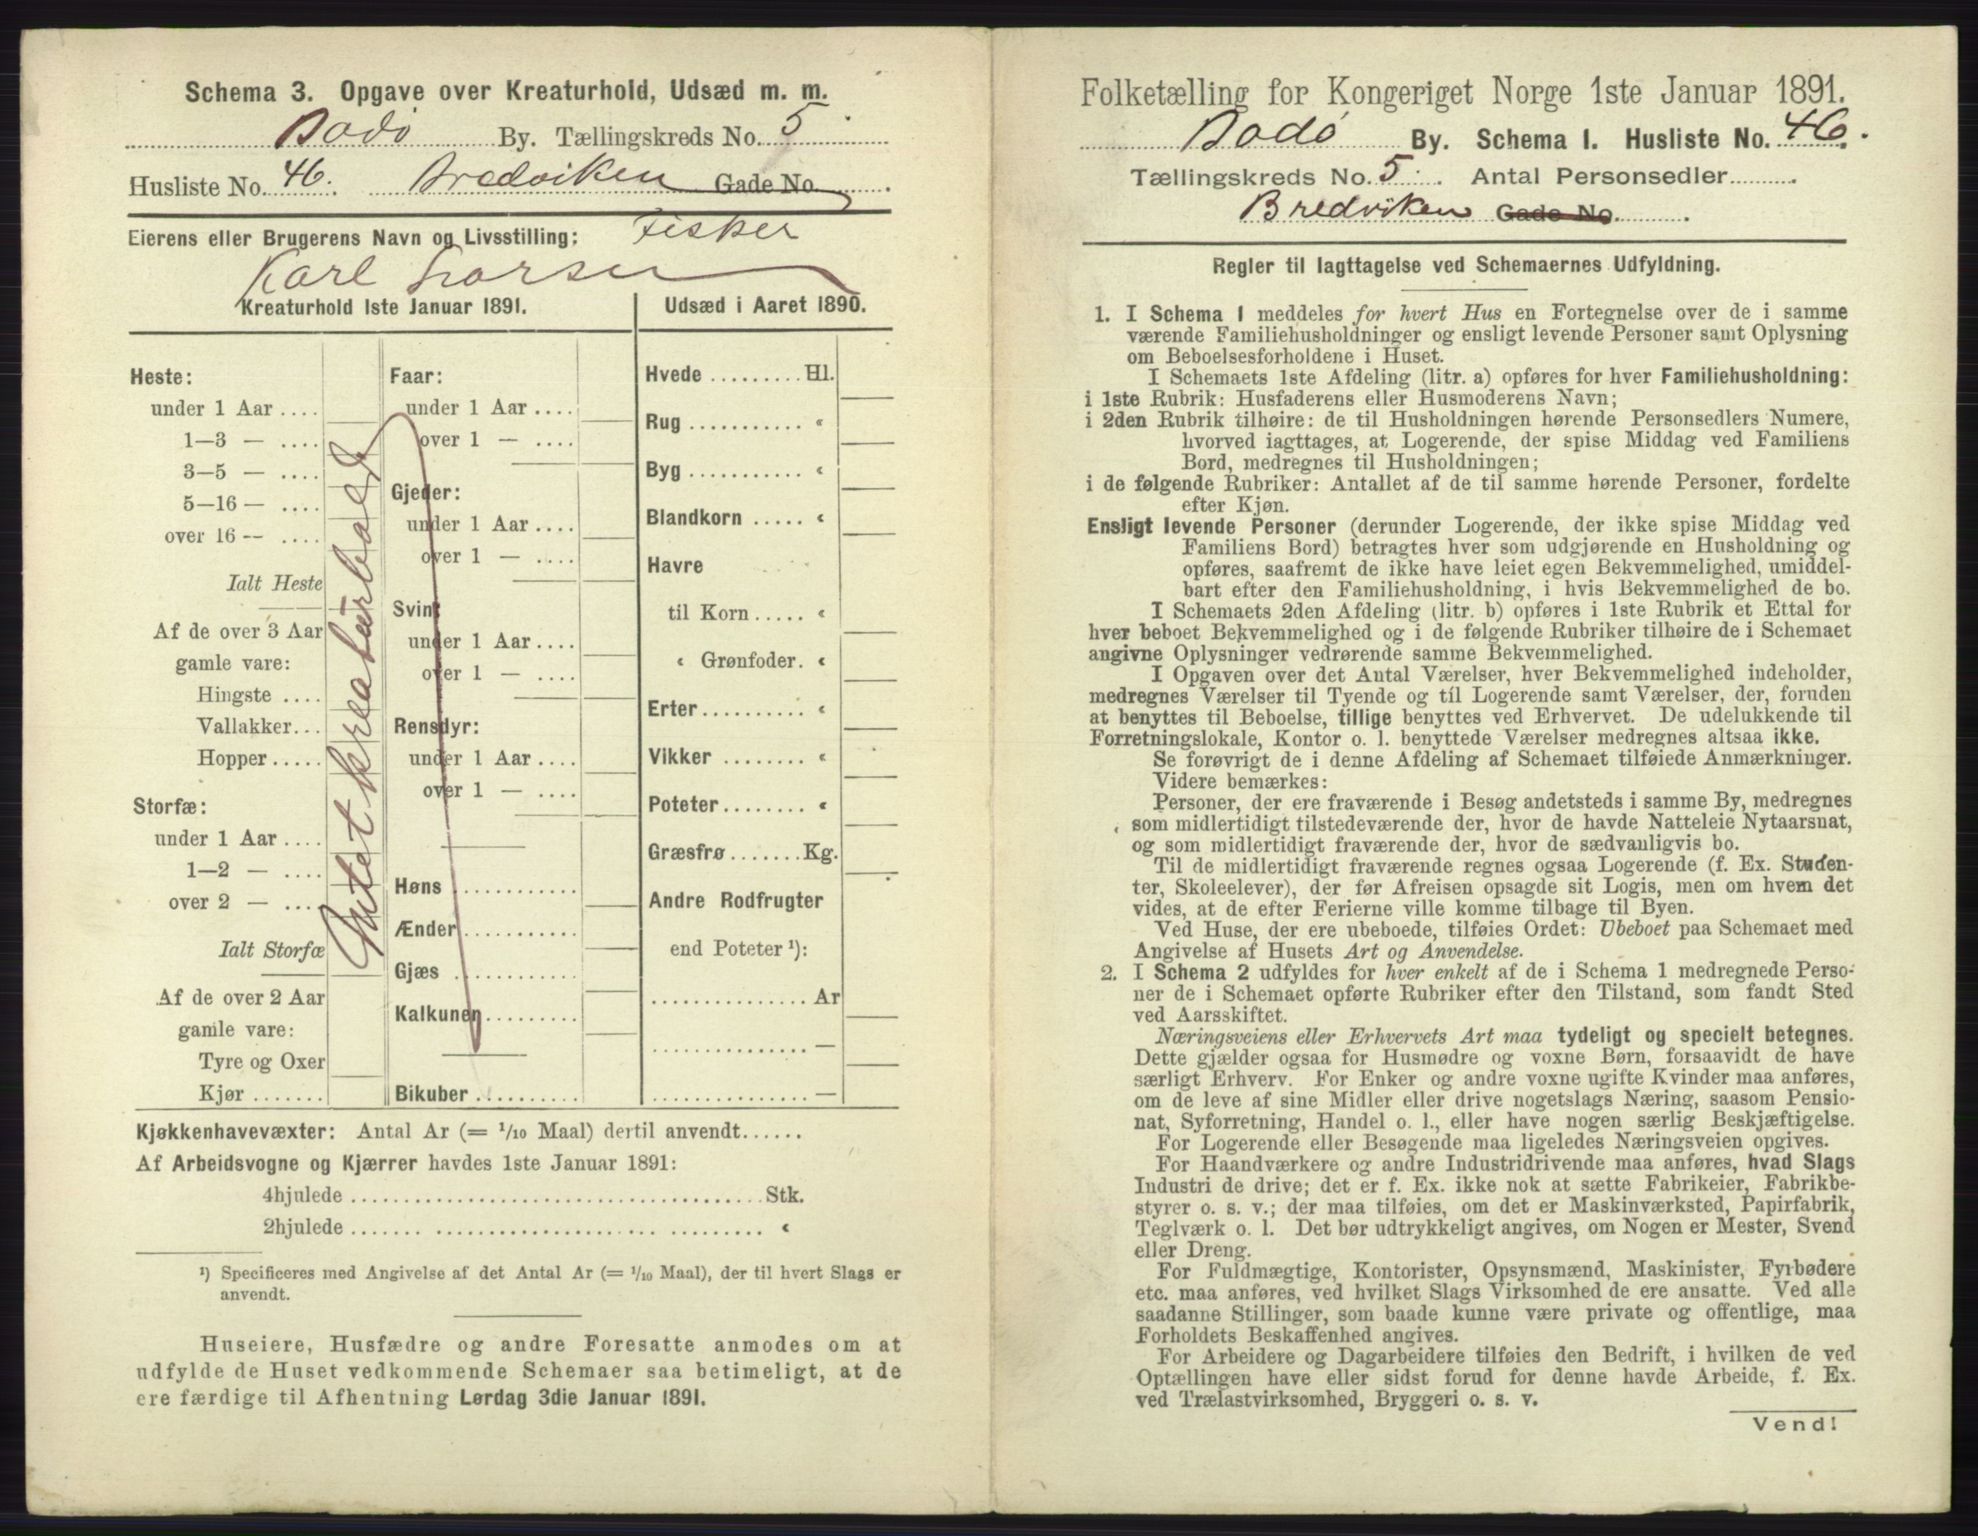 Schema 3. Opgave over Kreaturhold, Udsæd m. m.
Bodø By. Tællingskreds No. 5
Husliste No. 46. Bredviken Gade No
Eierens eller Brugerens Navn og Livsstilling: Fisker
Karl Larsen
Kreaturhold 1ste Januar 1891.
Heste:
under 1 Aar ....
1—3 — ....
3—5 — ....
5—16 — ....
over 16 — ....
Ialt Heste
Af de over 3 Aar
gamle vare:
Hingste ....
Vallakker...
Hopper.....
Storfæ:
under 1 Aar ....
1—2 — ....
over 2 — ....
Ialt Storfæ
Af de over 2 Aar
gamle vare:
Tyre og Oxer
Kjør .......
Intet kreaturhold
Faar:
under 1 Aar ....
over 1 — ....
Gjeder:
under 1 Aar ....
over 1 — ....
Svin:
under 1 Aar ....
over 1 — ....
Rensdyr:
under 1 Aar ....
over 1 — ....
Høns ............
Ænder...........
Gjæs ............
Kalkuner.........
Bikuber ..........
Udsæd i Aaret 1890.
Hvede ......... Hl.
Rug ........... «
Byg ........... «
Blandkorn ..... «
Havre
til Korn ..... «
« Grønfoder. «
Erter.......... «
Vikker ........ «
Poteter........ «
Græsfrø....... Kg.
Andre Rodfrugter
end Poteter ¹):
............... Ar
............... —
............... —
Kjøkkenhavevæxter: Antal Ar (= 1/10 Maal) dertil anvendt......
Af Arbeidsvogne og Kjærrer havdes 1ste Januar 1891:
4hjulede ........................................ Stk.
2hjulede ........................................ «
¹) Specificeres med Angivelse af det Antal Ar (= 1/10 Maal), der til hvert Slags er
anvendt.
Huseiere, Husfædre og andre Foresatte anmodes om at
udfylde de Huset vedkommende Schemaer saa betimeligt, at de
ere færdige til Afhentning Lørdag 3die Januar 1891.
Folketælling for Kongeriget Norge 1ste Januar 1891.
Bodø By. Schema 1. Husliste No. 46.
Tællingskreds No. 5. Antal Personsedler..........
Bredviken Gade No.
Regler til Iagttagelse ved Schemaernes Udfyldning.
1. I Schema 1 meddeles for hvert Hus en Fortegnelse over de i samme
værende Familiehusholdninger og ensligt levende Personer samt Oplysning
om Beboelsesforholdene i Huset.
I Schemaets 1ste Afdeling (litr. a) opføres for hver Familiehusholdning:
i 1ste Rubrik: Husfaderens eller Husmoderens Navn;
i 2den Rubrik tilhøire: de til Husholdningen hørende Personsedlers Numere,
hvorved iagttages, at Logerende, der spise Middag ved Familiens
Bord, medregnes til Husholdningen;
i de følgende Rubriker: Antallet af de til samme hørende Personer, fordelte
efter Kjøn.
Ensligt levende Personer (derunder Logerende, der ikke spise Middag ved
Familiens Bord) betragtes hver som udgjørende en Husholdning og
opføres, saafremt de ikke have leiet egen Bekvemmelighed, umiddel-
bart efter den Familiehusholdning, i hvis Bekvemmelighed de bo.
I Schemaets 2den Afdeling (litr. b) opføres i 1ste Rubrik et Ettal for
hver beboet Bekvemmelighed og i de følgende Rubriker tilhøire de i Schemaet
angivne Oplysninger vedrørende samme Bekvemmelighed.
I Opgaven over det Antal Værelser, hver Bekvemmelighed indeholder,
medregnes Værelser til Tyende og til Logerende samt Værelser, der, foruden
at benyttes til Beboelse, tillige benyttes ved Erhvervet. De udelukkende til
Forretningslokale, Kontor o. l. benyttede Værelser medregnes altsaa ikke.
Se forøvrigt de i denne Afdeling af Schemaet tilføiede Anmærkninger.
Videre bemærkes:
Personer, der ere fraværende i Besøg andetsteds i samme By, medregnes
som midlertidigt tilstedeværende der, hvor de havde Natteleie Nytaarsnat,
og som midlertidigt fraværende der, hvor de sædvanligvis bo.
Til de midlertidigt fraværende regnes ogsaa Logerende (f. Ex. Studen-
ter, Skoleelever), der før Afreisen opsagde sit Logis, men om hvem det
vides, at de efter Ferierne ville komme tilbage til Byen.
Ved Huse, der ere ubeboede, tilføies Ordet: Ubeboet paa Schemaet med
Angivelse af Husets Art og Anvendelse.
2. I Schema 2 udfyldes for hver enkelt af de i Schema 1 medregnede Perso-
ner de i Schemaet opførte Rubriker efter den Tilstand, som fandt Sted
ved Aarsskiftet.
Næringsveiens eller Erhvervets Art maa tydeligt og specielt betegnes.
Dette gjælder ogsaa for Husmødre og voxne Børn, forsaavidt de have
særligt Erhverv. For Enker og andre voxne ugifte Kvinder maa anføres,
om de leve af sine Midler eller drive nogetslags Næring, saasom Pensio-
nat, Syforretning, Handel o. l., eller have nogen særlig Beskjæftigelse.
For Logerende eller Besøgende maa ligeledes Næringsveien opgives.
For Haandværkere og andre Industridrivende maa anføres, hvad Slags
Industri de drive; det er f. Ex. ikke nok at sætte Fabrikeier, Fabrikbe-
styrer o. s. v.; der maa tilføies, om det er Maskinværksted, Papirfabrik,
Teglværk o. l. Det bør udtrykkeligt angives, om Nogen er Mester, Svend
eller Dreng.
For Fuldmægtige, Kontorister, Opsynsmænd, Maskinister, Fyrbødere
etc. maa anføres, ved hvilket Slags Virksomhed de ere ansatte. Ved alle
saadanne Stillinger, som baade kunne være private og offentlige, maa
Forholdets Beskaffenhed angives.
For Arbeidere og Dagarbeidere tilføies den Bedrift, i hvilken de ved
Optællingen have eller sidst forud for denne havde Arbeide, f. Ex.
ved Trælastvirksomhed, Bryggeri o. s. v.
Vend!